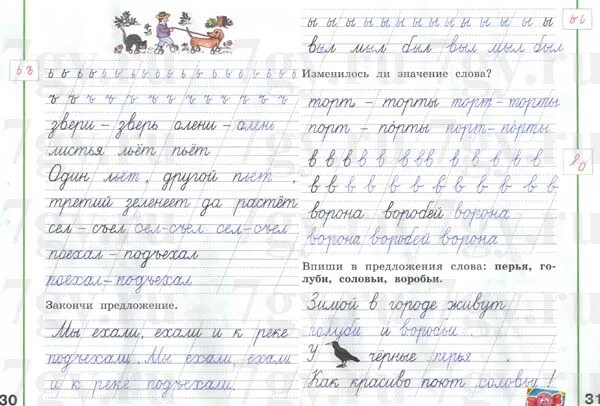 ь ъ
ь ь ь ь ь ь ь ь ь ь ь ь ь ь ь ь ь ь ь
ъ ъ ъ ъ ъ ъ ъ ъ ъ ъ ъ ъ ъ ъ
звери – зверь олени – олень
листья льёт пьёт
Один льет, другой пьет,
третий зеленеет да растёт
сел – съел сел-съел сел-съел
поехал – подъехал
поехал – подъехал
Закончи предложение.
Мы ехали, ехали и к реке
подъехали. Мы ехали, ехали
и к реке подъехали.
30
ы ы ы ы ы ы ы ы ы ы ы ы ы ы ы
выл мыл был выл мыл был
ы
Изменилось ли значение слова?
торт – торты торт – торты
порт – порты порт – порты
в в в в в в в в в в в в в в
в в в в в в в в в в в в в
ворона воробей ворона
ворона воробей ворона
Впиши в предложения слова: перья, го-
луби, соловьи, воробьи.
Зимой в городе живут
голуби и воробьи.
У чёрные перья.
Как красиво поют соловьи!
31
7gy.ru